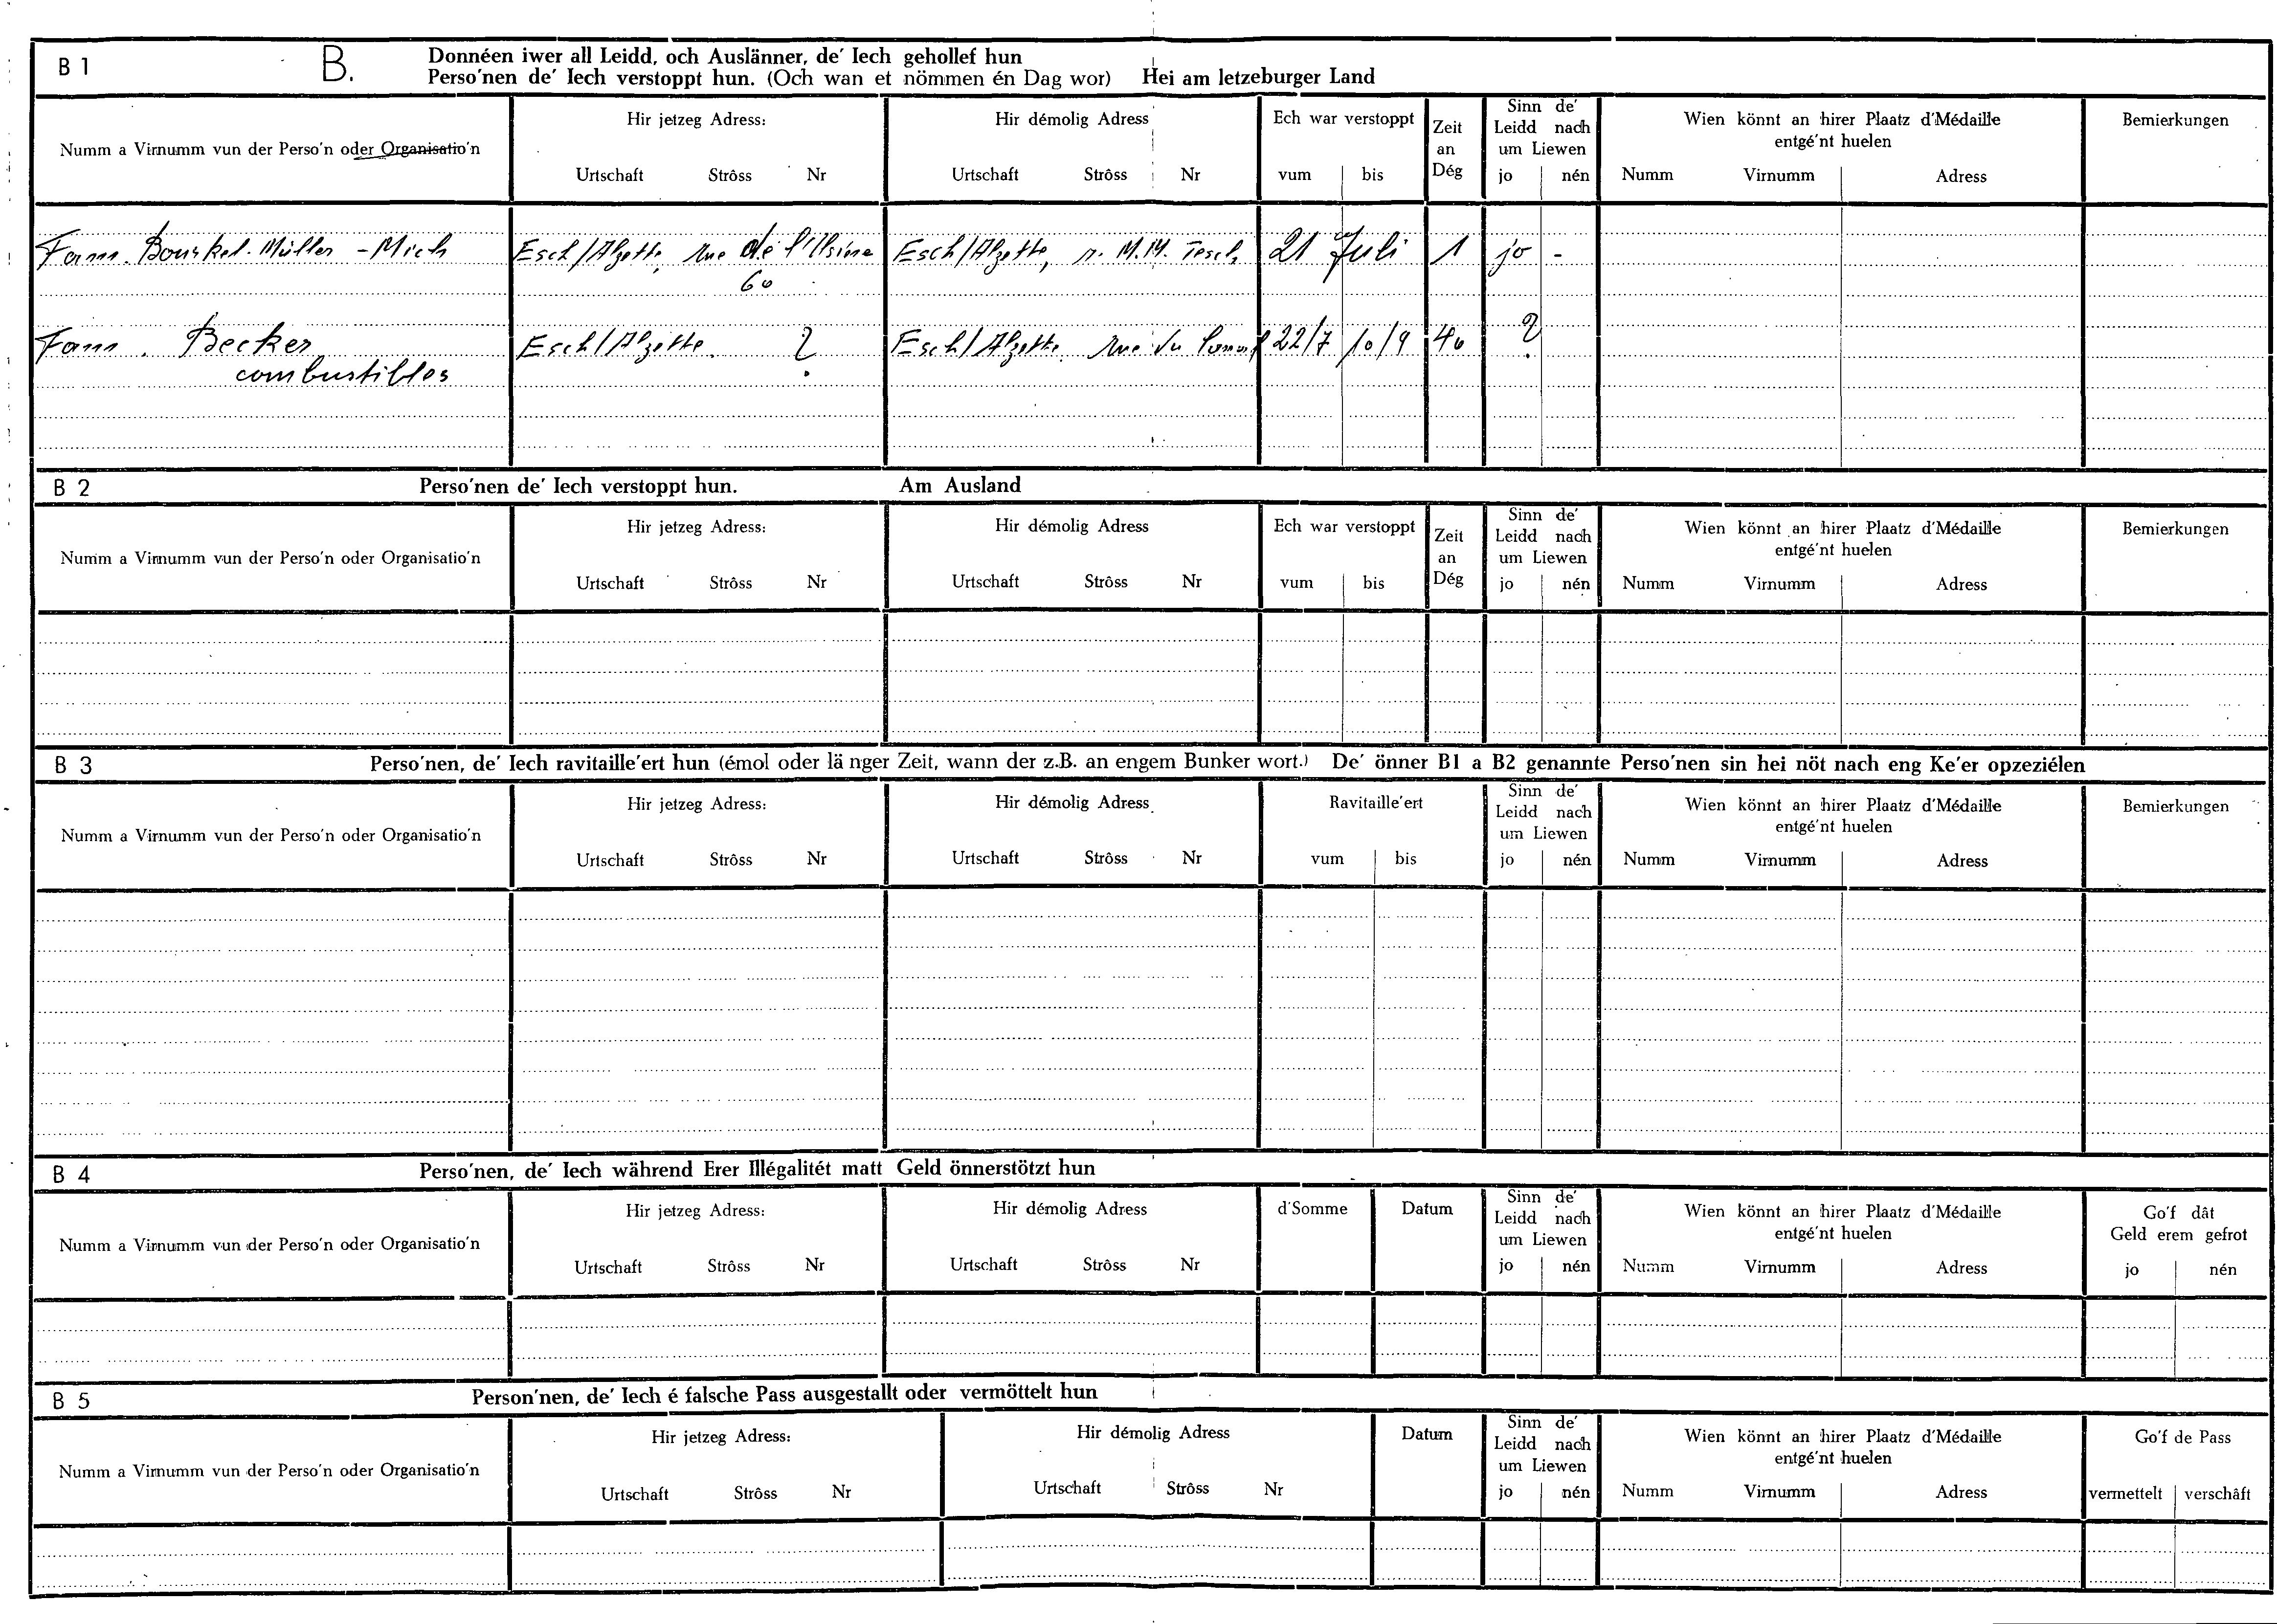 B 1
B.
Donnéen iwer all Leidd, och Auslänner, de' Iech gehollef hun
Perso'nen de' Iech verstoppt hun. (Och wan et nömmen én Dag wor) Hei am letzeburger Land
Numm a Virnumm vun der Perso'n oder Organisatio'n
Hir jetzeg Adress:
Urtschaft Strôss Nr
Hir démolig Adress
Urtschaft Strôss Nr
Ech war verstoppt
vum bis
Zeit
an
Dég
Sinn de'
Leidd nach
um Liewen
jo nén
Wien könnt an hirer Plaatz d'Médaille
entgé'nt huelen
Numm Virnumm Adress
Bemierkungen
Fam. Bourkel. Müller - Mich Esch/Alzette, rue de l'Usine Esch/Alzette, r. M.M. Tesch, 21 Juli 1 jo -
60
Fam. Becker Esch/Alzette. ? Esch/Alzette, rue du 22/7 10/9 40 ?
combustibles
B 2
Perso'nen de' Iech verstoppt hun. Am Ausland
Numm a Virnumm vun der Perso'n oder Organisatio'n
Hir jetzeg Adress:
Urtschaft Strôss Nr
Hir démolig Adress
Urtschaft Strôss Nr
Ech war verstoppt
vum bis
Zeit
an
Dég
Sinn de'
Leidd nach
um Liewen
jo nén
Wien könnt an hirer Plaatz d'Médaille
entgé'nt huelen
Numm Virnumm Adress
Bemierkungen
B 3
Perso'nen, de' Iech ravitaille'ert hun (émol oder länger Zeit, wann der z.B. an engem Bunker wort.) De' önner B1 a B2 genannte Perso'nen sin hei nöt nach eng Ke'er opzeziélen
Numm a Virnumm vun der Perso'n oder Organisatio'n
Hir jetzeg Adress:
Urtschaft Strôss Nr
Hir démolig Adress
Urtschaft Strôss Nr
Ravitaille'ert
vum bis
Sinn de'
Leidd nach
um Liewen
jo nén
Wien könnt an hirer Plaatz d'Médaille
entgé'nt huelen
Numm Virnumm Adress
Bemierkungen
B 4
Perso'nen, de' Iech während Erer Illégalitét matt Geld önnerstötzt hun
Numm a Virnumm vun der Perso'n oder Organisatio'n
Hir jetzeg Adress:
Urtschaft Strôss Nr
Hir démolig Adress
Urtschaft Strôss Nr
d'Somme
Datum
Sinn de'
Leidd nach
um Liewen
jo nén
Wien könnt an hirer Plaatz d'Médaille
entgé'nt huelen
Numm Virnumm Adress
Go'f dât
Geld erem gefrot
jo nén
B 5
Person'nen, de' Iech é falsche Pass ausgestallt oder vermöttelt hun
Numm a Virnumm vun der Perso'n oder Organisatio'n
Hir jetzeg Adress:
Urtschaft Strôss Nr
Hir démolig Adress
Urtschaft Strôss Nr
Datum
Sinn de'
Leidd nach
um Liewen
jo nén
Wien könnt an hirer Plaatz d'Médaille
entgé'nt huelen
Numm Virnumm Adress
Go'f de Pass
vermettelt verschâft